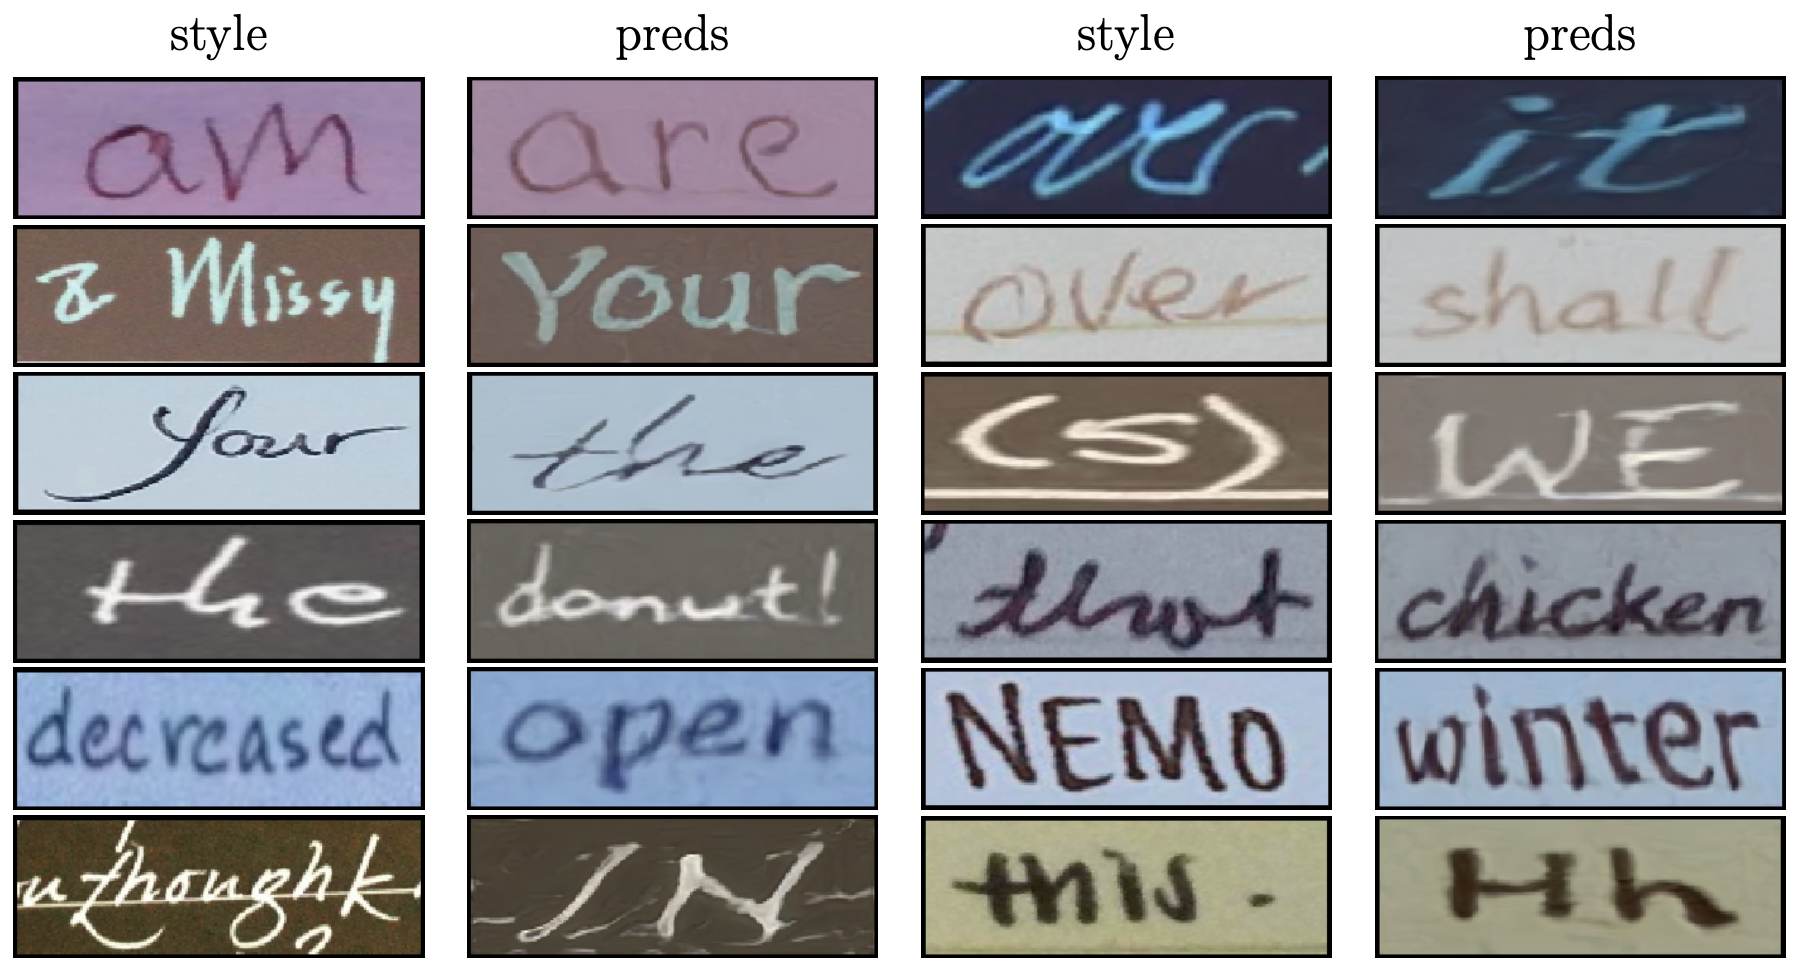 style preds style preds
am are over it
& Missy Your over shall
your the (5) WE
the donut! that chicken
decreased open NEMO winter
thought IN this. Hh